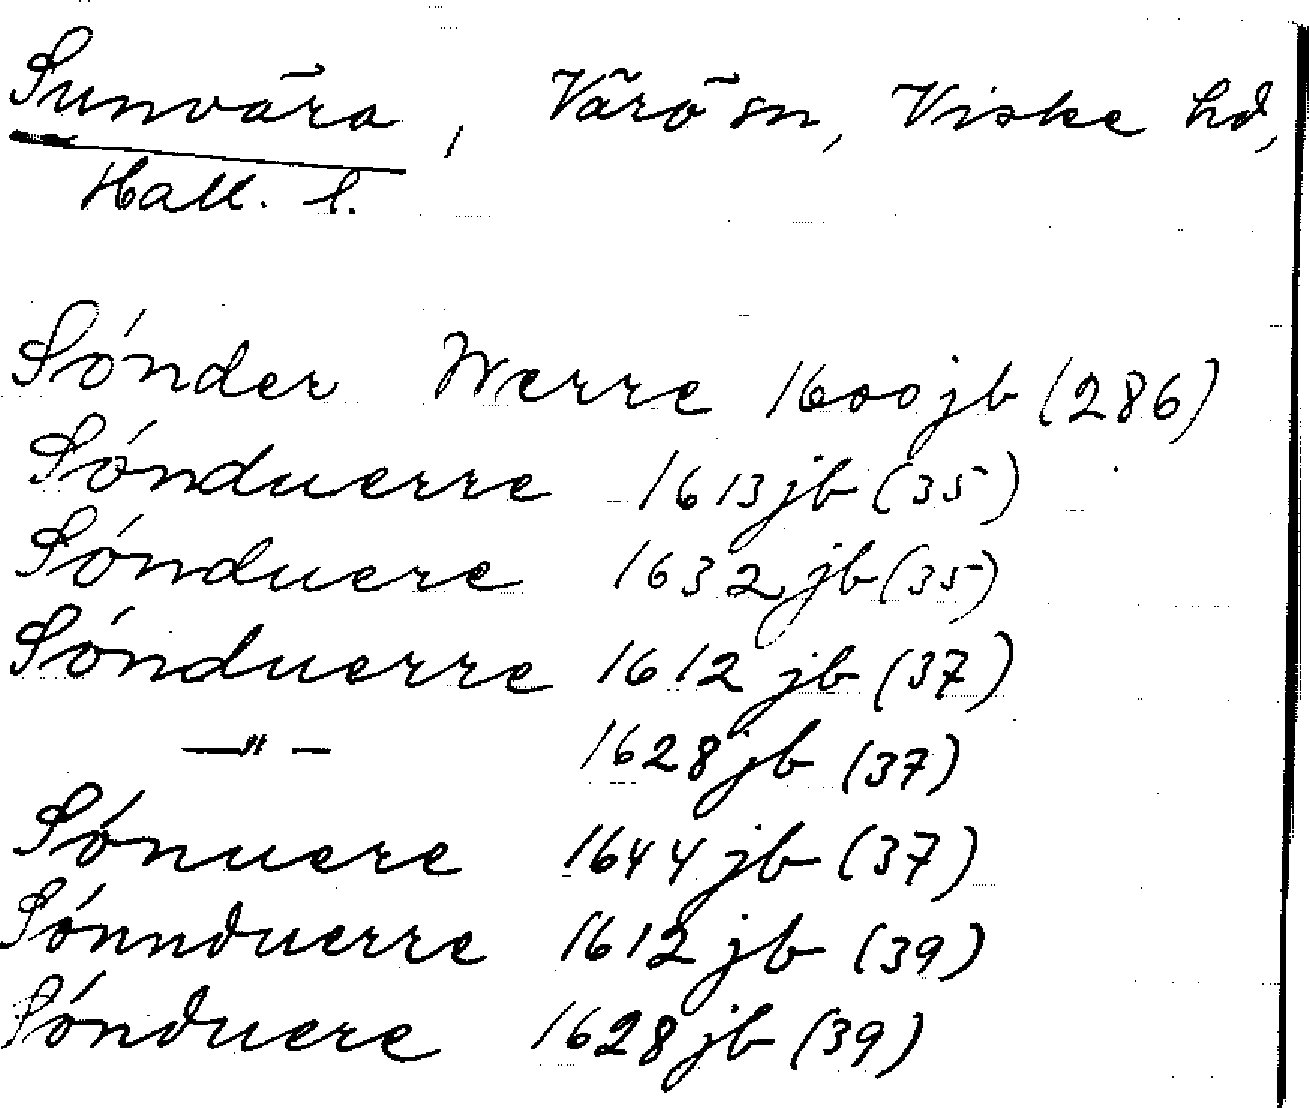 Sunvära, Värö sn, Viske hd,
Hall. l.
Sónder Werre 1600 jb (286)
Sónduerre 1613 jb (35)
Sónduere 1632 jb (35)
Sónduerre 1612 jb (37)
—"— 1628 jb (37)
Sónuere 1644 jb (37)
Sónnduerre 1612 jb (39)
Sónduere 1628 jb (39)